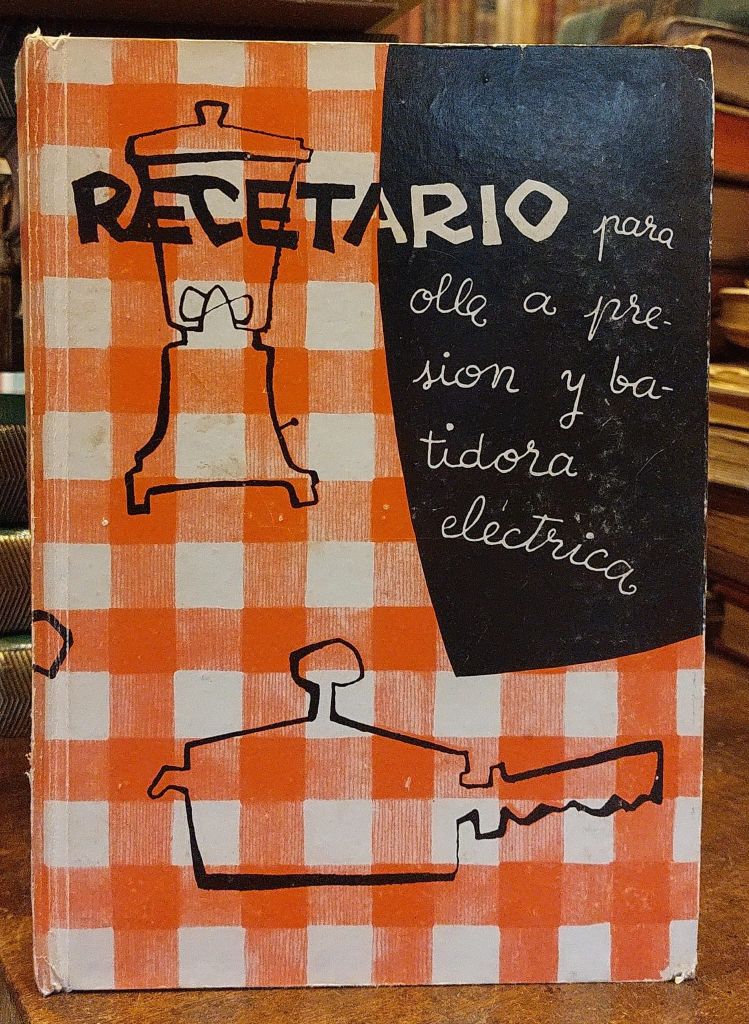 RECETARIO para
olla a pre-
sion y ba-
tidora
eléctrica